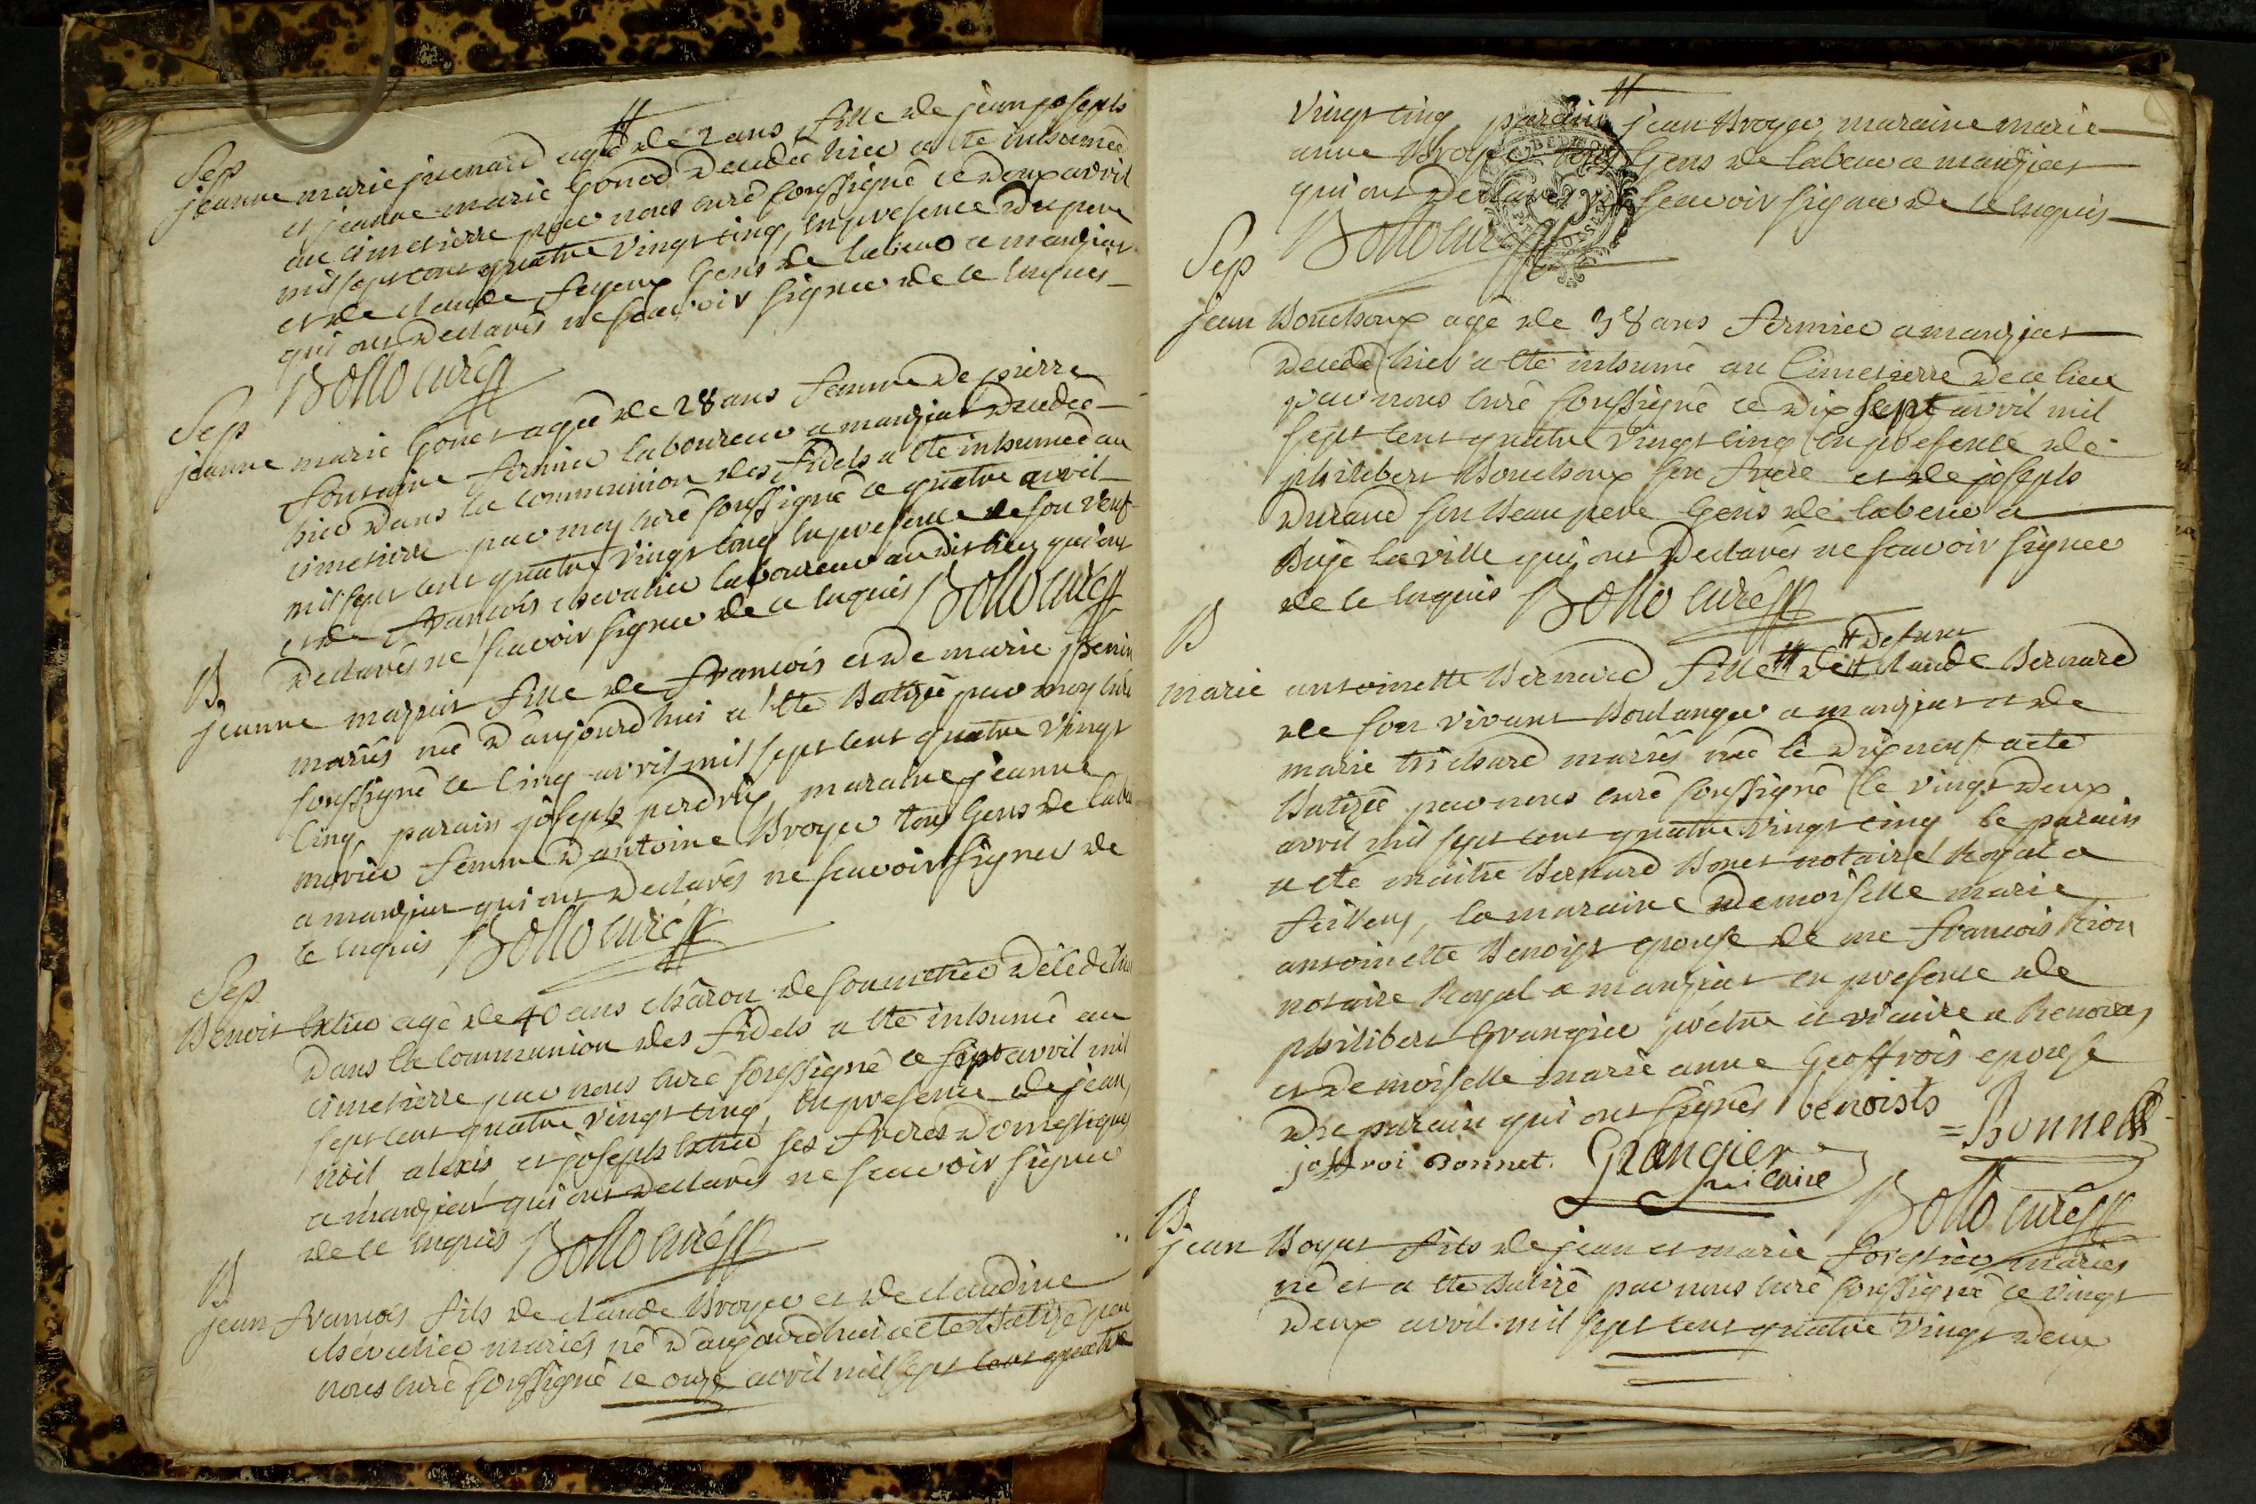 Sep
jeanne marie juenard agé de 2 ans fille de jean joseph
et jeanne marie Goned decedée hier a été inhumée
au cimetierre par nous curé soussigné ce deux avril
mil sept cent quatre vingt cinq, en presence du pere
et de claude feyeux Gens de labeur a manziat
qui ont declarés ne scavoir signer de ce enquis
Bollo curé
Sep
jeanne marie Gonet agée de 28 ans femme de pierre
fontaine fermier laboureur a manziat decedée
hier dans la communion des fidels a été inhumée au
cimetierre par moy curé soussigné ce quatre avril
mil sept cent quatre vingt cinq en presence de son veuf
et de francois chevalier laboureur audit lieu qui ont
declarés ne scavoir signer de ce enquis Bollo curé
B
jeanne mazuir fille de francois et de marie
mariés née d'aujourd'hui a été Batizée par moy curé
soussigné ce cinq avril mil sept cent quatre vingt
cinq, parain joseph perdrix, maraine jeanne
femme d'antoine Broyer tous Gens de labeur
a manziat qui ont declarés ne scavoir signer de
ce enquis Bollo curé
Sep
Benoit agé de 40 ans charon de son metier decedé hier
dans la communion des fidels a été inhumé au
cimetierre par nous curé soussigné ce sept avril mil
sept cent quatre vingt cinq, en presence de jean,
noel alexis et joseph ses freres domestiques
a manziat qui ont declarés ne scavoir signer
de ce enquis Bollo curé
B
jean francois fils de claude Broyer et de claudine
chevalier mariés né d'aujourdhui a été Batizé par
nous curé soussigné ce onze avril mil sept cent quatre
vingt cinq parain jean Broyer, maraine marie
anne Broyer tous Gens de labeur a manziat
qui ont declarés ne scavoir signer de ce enquis
Bollo curé
Sep
jean Bouchoux agé de 38 ans fermier a manziat
decedé hier a été inhumé au Cimetierre de ce lieu
par nous curé soussigné ce dix sept avril mil
sept cent quatre vingt cinq en presence de
philibert Bouchoux son frere et de joseph
durand son Beau pere Gens de labeur a
Bage la ville qui ont declarés ne scavoir signer
de ce enquis Bollo curé
B
defunt
marie antoinette Bernard fille de claude Bernard
de son vivant Boulanger a manziat et de
marie trichard mariés née le dix neuf a été
Batizée par nous curé soussigné le vingt deux
avril mil sept cent quatre vingt cinq le parain
a été maitre Bernard Bonet notaire Royal a
feillens, la maraine demoiselle marie
antoinette Benoist epouse de me francois Rion
notaire Royal a manziat en presence de
philibert Grangier prêtre et vicaire a Replonges
et demoiselle marie anne Geoffrois epouse
du parain qui ont signés benoists
= Bonnet
joffroi Bonnet. Grangier
vicaire
Bollo curé
B
jean Boyat fils de jean et marie forestier mariés
né et a été Batizé par nous curé soussigné ce vingt
deux avril mil sept cent quatre vingt deux